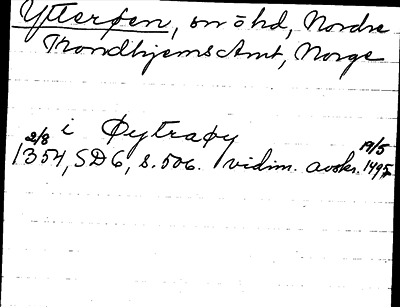 Ytterøen, sn o hd, Nordre
Trondhjems Amt, Norge
i Øytraøy
2/8 19/5
1354, SD6, s. 506. vidim. avskr. 1495